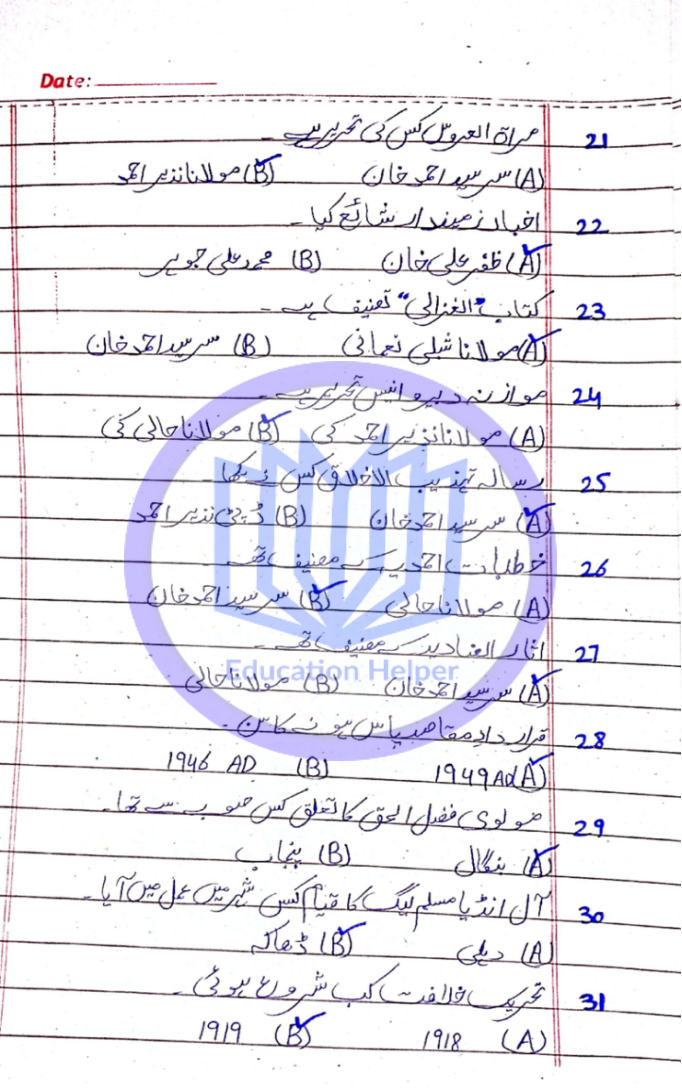 Date:
21 مراۃ العروس کس کی تحریر ہے ۔
(A) سر سید احمد خان (B) مولانا نذیر احمد
22 اخبار زمیندار شائع کیا ۔
(A) ظفر علی خان (B) محمد علی جوہر
23 کتاب "الغزالی" تصنیف ہے ۔
(A) مولانا شبلی نعمانی (B) سر سید احمد خان
24 موازنہ دبیر و انیس تحریر ہے ۔
(A) مولانا نذیر احمد کی (B) مولانا حالی کی
25 رسالہ تہذیب الاخلاق کس نے لکھا ۔
(A) سر سید احمد خان (B) ڈپٹی نذیر احمد
26 خطبات احمدیہ کے مصنف تھے ۔
(A) مولانا حالی (B) سر سید احمد خان
27 اثار الصنادید کے مصنف تھے ۔
Education Helper
(A) سر سید احمد خان (B) مولانا حالی
28 قرار داد مقاصد پاس ہونے کا سن ۔
(A) 1949 AD (B) 1946 AD
29 مولوی فضل الحق کا تعلق کس صوبے سے تھا ۔
(A) بنگال (B) پنجاب
30 آل انڈیا مسلم لیگ کا قیام کس شہر میں عمل میں آیا ۔
(A) دہلی (B) ڈھاکہ
31 تحریک خلافت کب شروع ہوئی ۔
(A) 1918 (B) 1919